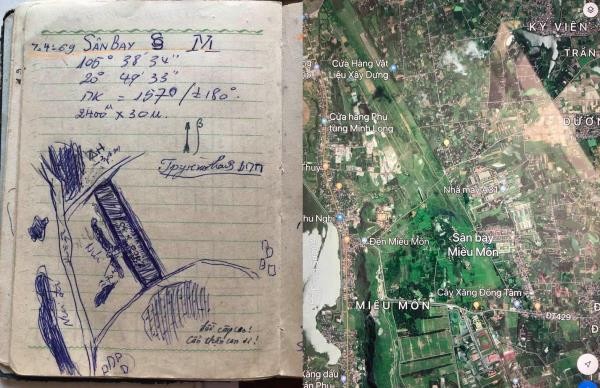 7-4-69 SÂN BAY § M
105° 38' 34"
20° 49' 33"
ПК = 157° / ±180°.
2400 × 30м.
B
Грунтовая ВПП
đồi cây cao!
KỲ VIÊN
TRẦN
Cửa Hàng Vật
Liệu Xây Dựng
Cửa hàng Phụ
tùng Minh Long
DƯƠN
Thuy
Nhà máy A31
Phu Nghi
Đền Miếu Môn
Sân bay
Miếu Môn
MIẾU MÔN
Cây Xăng Đồng Tâm
ĐT429
Xăng dầu
ân Phụ